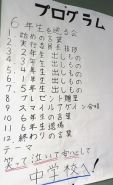 プログラム
6年生を送る会
1 始めの言葉
2 実行委員長挨拶
3 2年生出しもの
4 1年生出しもの
5 4年生出しもの
6 3年生出しもの
7 5年生出しもの
8 プレゼント贈呈
9 スマイルアゲイン合唱
10 6年生の言葉
11 6年生退場
12 終わりの言葉
テーマ
笑って泣いて安心して
中学校へ!